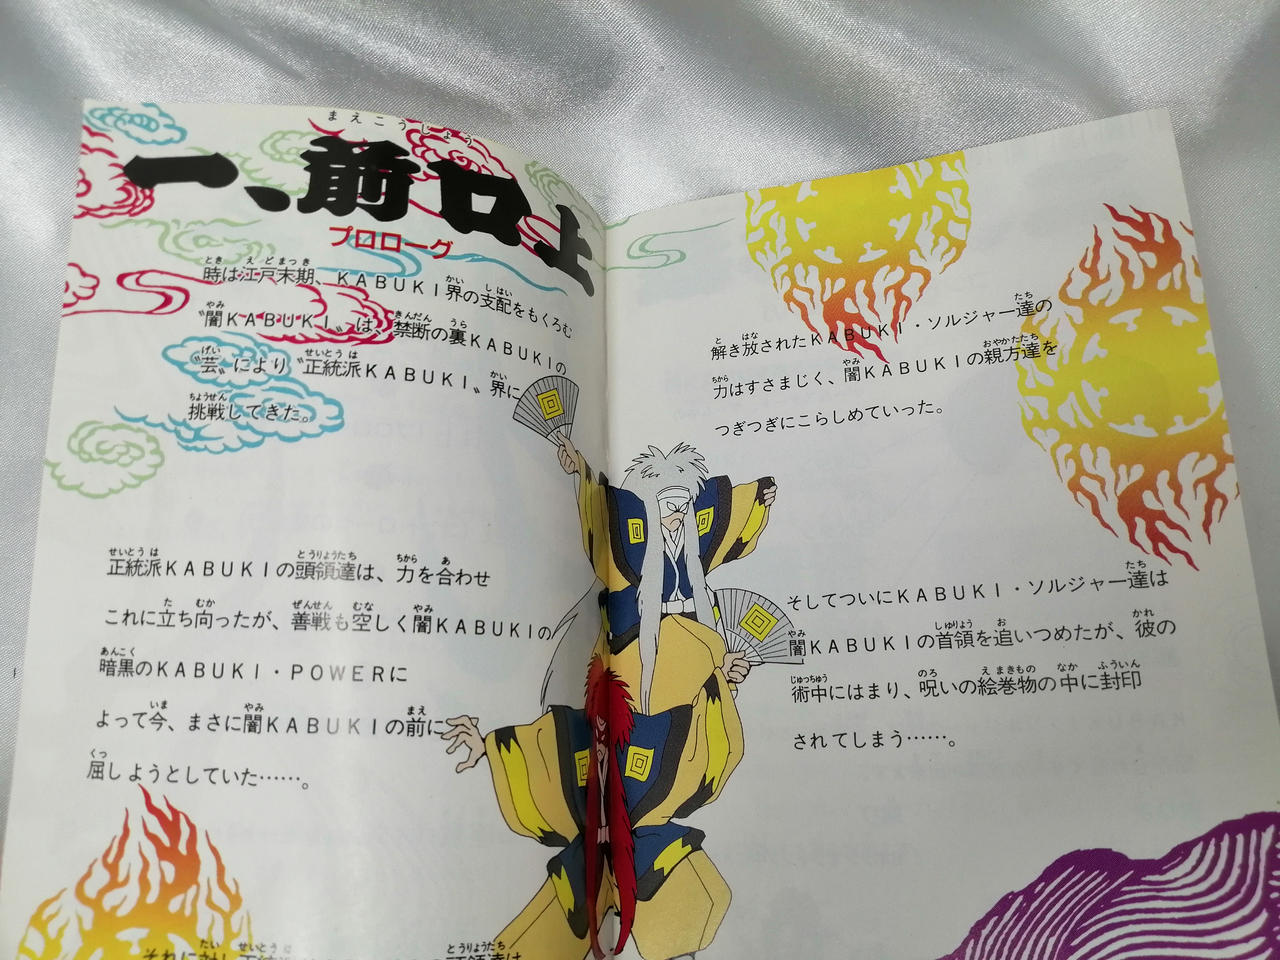 まえこうじょう
一、前口上
プロローグ
時は江戸末期、KABUKI界の支配をもくろむ
〝闇KABUKI〟は、禁断の裏KABUKIの
〝芸〟により〝正統派KABUKI〟界に
挑戦してきた。
正統派KABUKIの頭領達は、力を合わせ
これに立ち向ったが、善戦も空しく闇KABUKIの
暗黒のKABUKI・POWERに
よって今、まさに闇KABUKIの前に
屈しようとしていた……。
それに対し正統派
頭領達は
解き放されたKABUKI・ソルジャー達の
力はすさまじく、闇KABUKIの親方達を
つぎつぎにこらしめていった。
そしてついにKABUKI・ソルジャー達は
闇KABUKIの首領を追いつめたが、彼の
術中にはまり、呪いの絵巻物の中に封印
されてしまう……。